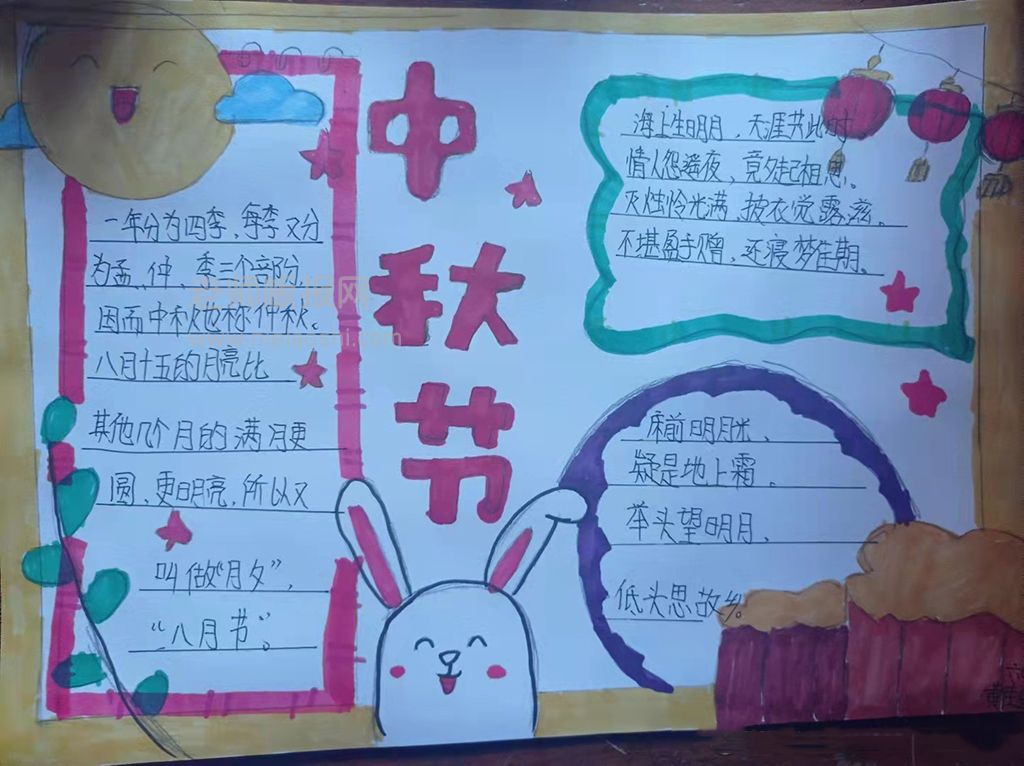 中秋节
一年分为四季，每季又分
为孟、仲、季三个部分，
因而中秋也称仲秋。
八月十五的月亮比
其他几个月的满月更
圆、更明亮，所以又
叫做“月夕”，
“八月节”。
海上生明月，天涯共此时
情人怨遥夜，竟夕起相思。
灭烛怜光满，披衣觉露滋。
不堪盈手赠，还寝梦佳期。
床前明月光、
疑是地上霜。
举头望明月、
低头思故乡。